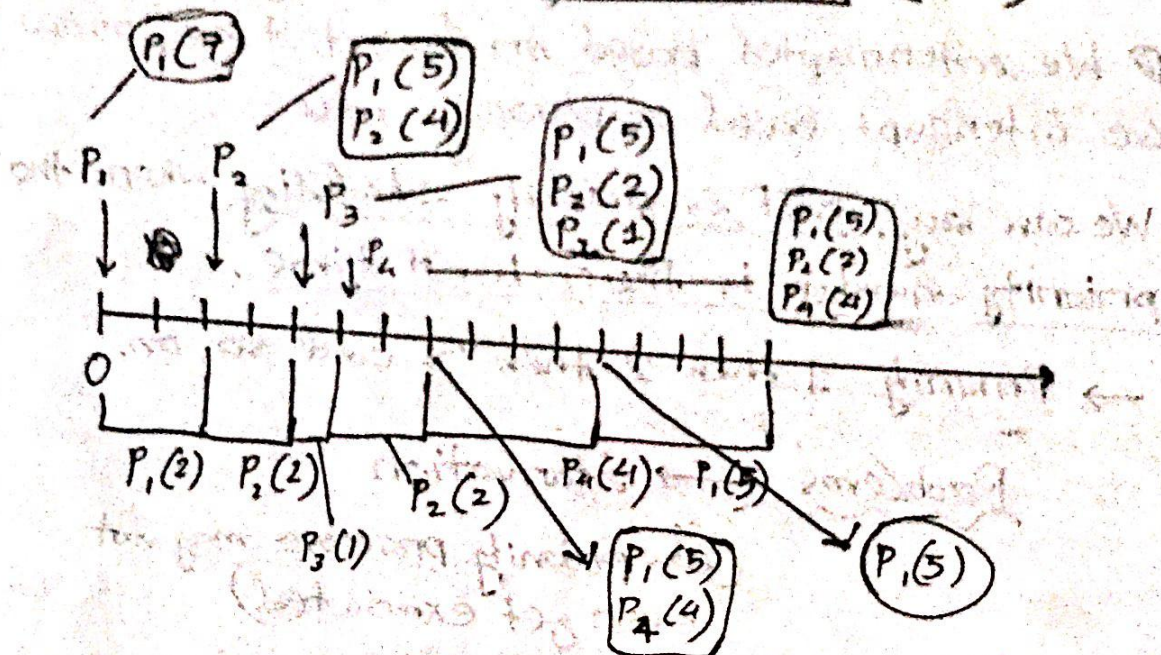 P₁(7)
P₁(5)
P₂(4)
P₁(5)
P₂(2)
P₃(1)
P₁(5)
P₂(2)
P₄(4)
P₁
P₂
P₃
P₄
0
P₁(2)
P₂(2)
P₃(1)
P₂(2)
P₄(4)
P₁(5)
P₁(5)
P₄(4)
P₁(5)